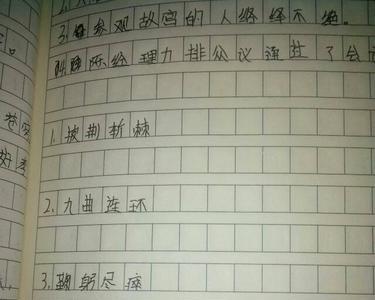 3.参观故宫的人络绎不绝。
陈际经理力排众议通过了会
1.披荆折棘
2.九曲连环
3.鞠躬尽瘁